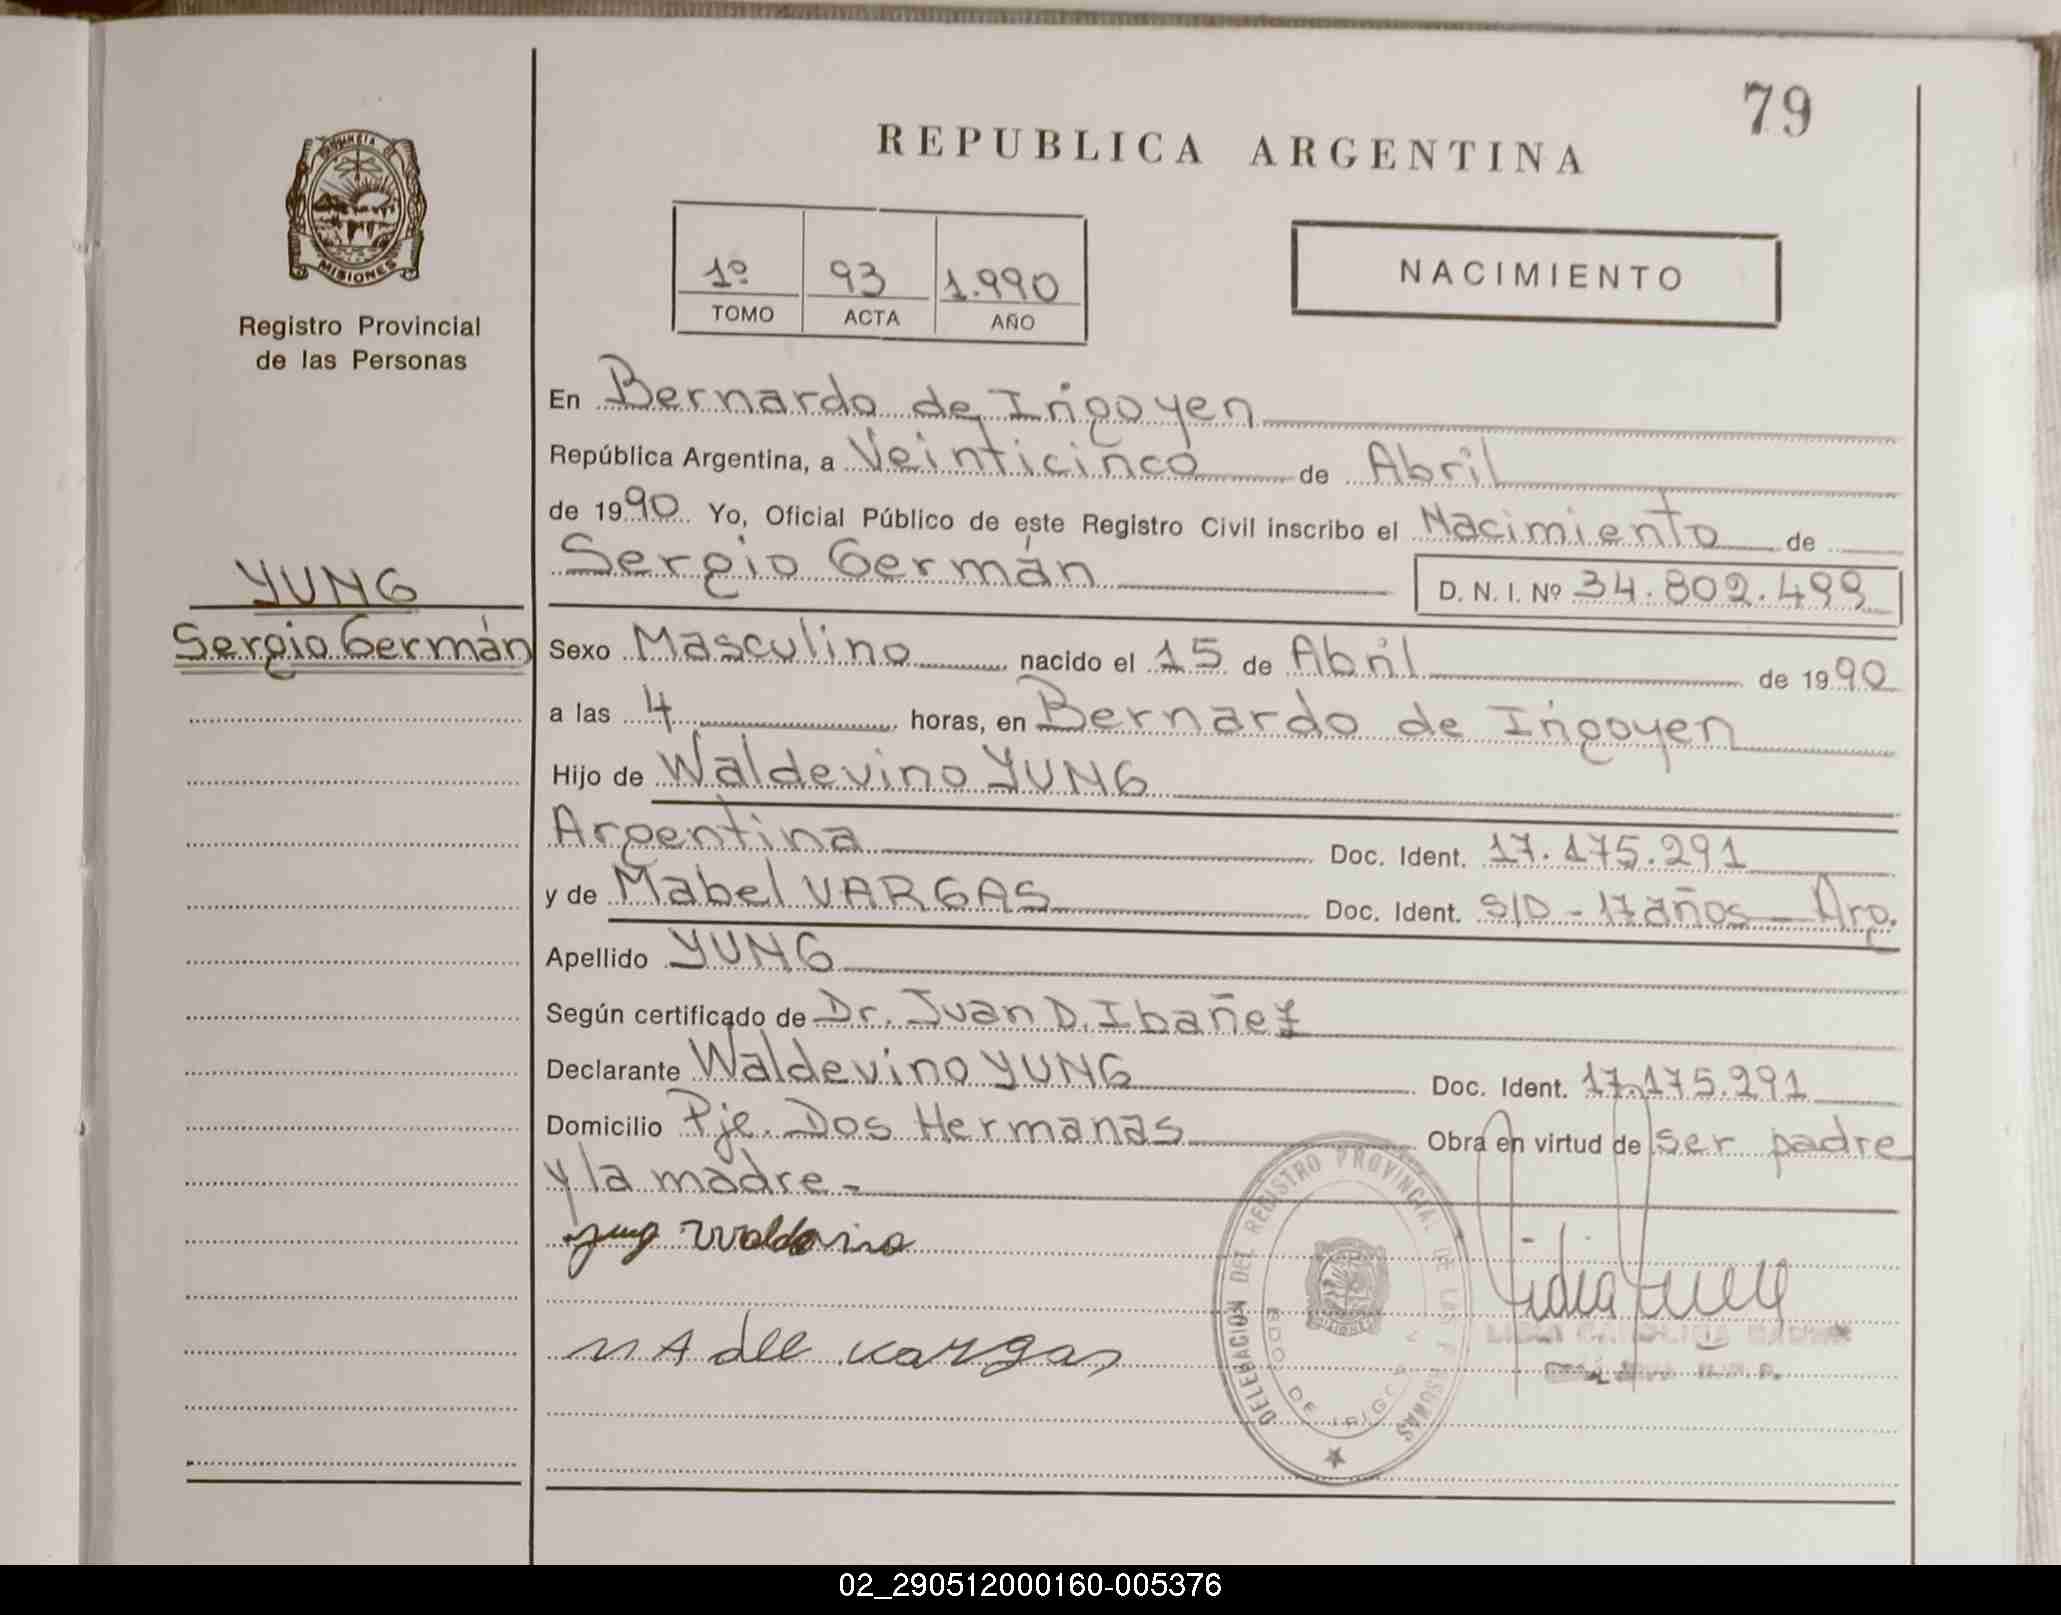 79
REPUBLICA ARGENTINA
PROVINCIA DE
MISIONES
Registro Provincial
de las Personas
1º 93 1.990
TOMO ACTA AÑO
NACIMIENTO
En Bernardo de Irigoyen
República Argentina, a Veinticinco de Abril
de 1990 Yo, Oficial Público de este Registro Civil inscribo el Nacimiento de
Sergio Germán D. N. I. Nº 34.802.499
YUNG
Sergio Germán
Sexo Masculino nacido el 15 de Abril de 1990
a las 4 horas, en Bernardo de Irigoyen
Hijo de Waldevino YUNG
Argentina Doc. Ident. 17.175.291
y de Mabel VARGAS Doc. Ident. S/D - 17 años - Arg.
Apellido YUNG
Según certificado de Dr. Juan D. Ibañez
Declarante Waldevino YUNG Doc. Ident. 17.175.291
Domicilio Pje. Dos Hermanas Obra en virtud de ser padre
y la madre -
DELEGACION DEL REGISTRO PROVINCIAL DE LAS PERSONAS
BDO. DE IRIGOYEN
vargas
02_290512000160-005376